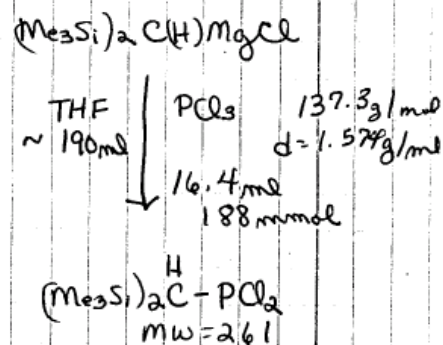 (Me3Si)2 C(H)MgCl
THF PCl3 137.3g/mol
~ 190ml d=1.574g/ml
16.4ml
188mmol
H
(Me3Si)2C-PCl2
MW=261